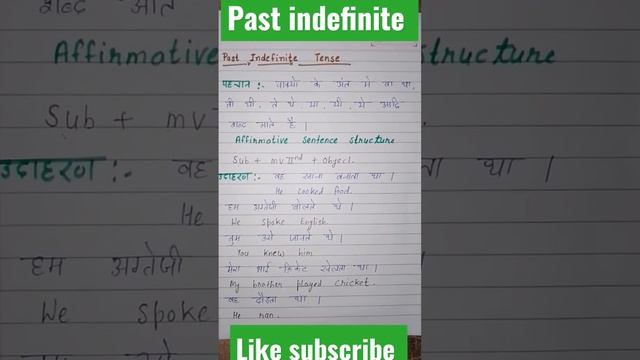 Past indefinite
Past Indefinite Tense
पहचान :- वाक्यो के अंत मे ता था,
ती थी, ते थे, या, यी, ये आदि
शब्द आते है।
Affirmative Sentence Structure
Sub + mv IInd + Object.
उदाहरण :- वह खाना बनाता था।
He cooked food.
हम अंग्रेजी बोलते थे।
We spoke English.
तुम उसे जानते थे।
You knew him
मेरा भाई क्रिकेट खेलता था।
My brother played cricket.
वह दौड़ता था।
He ran.
Like subscribe